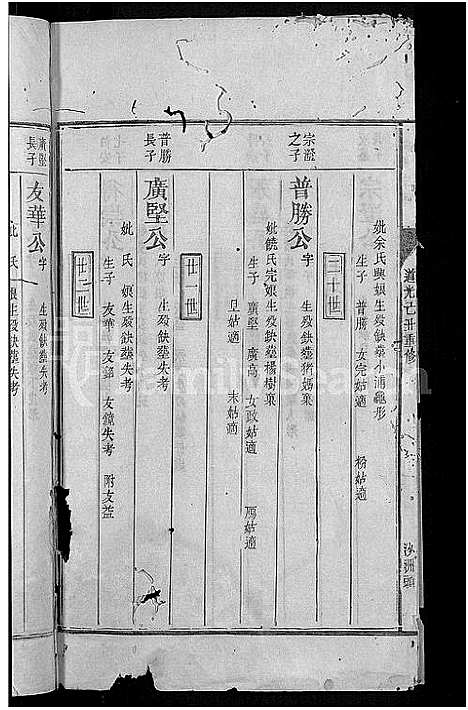 道光己丑重修
汝洲頭
妣余氏興娘生歿缺塟小浦龜形
生子 普勝 女宗姑適 粉姑適
二十世
宗澂之子
普勝公字 生歿缺塟猪媽棗
妣饒氏完娘生歿缺塟楊樹棗
生子 廣堅 廣高 女政姑適 馬姑適
旦姑適 末姑適
廿一世
普勝長子
廣堅公字 生歿缺塟失考
妣 氏 娘生歿缺塟失考
生子 友華 友 女鐘失考 附友益
廿二世
廣堅長子
友華公字 生歿缺塟失考
妣 氏 娘生歿缺塟失考